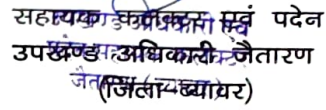 सहायक कलेक्टर एवं पदेन
उपखण्ड अधिकारी जैतारण
(जिला-ब्यावर)